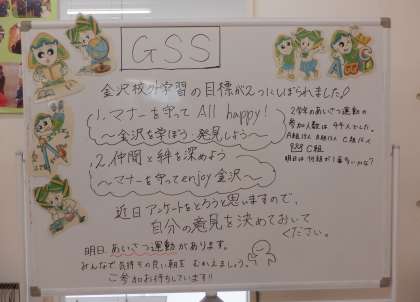 GSS
金沢校外学習の目標が2つにしぼられました♪
1.マナーを守って All happy!
～金沢を学ぼう 発見しよう～
2.仲間と絆を深めよう
～マナーを守ってenjoy金沢～
近日アンケートをとろうと思いますので、
自分の意見を決めておいて
ください。
明日、あいさつ運動があります。
みんなで気持ちの良い朝を むかえましょう。
ご参加お待ちしています!!
2学年のあいさつ運動の
参加人数は 4千人でした。
A組 B組 C組
C組
明日は 何組が1番多いかな?